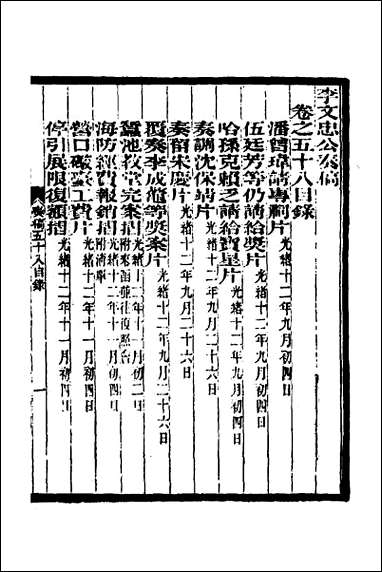 李文忠公奏稿
卷之五十八目錄
潘曾瑋請專祠片 光緒十二年九月初四日
伍廷芳等仍請給獎片 光緒十二年九月初四日
哈孫克賴乏請給寶星片 光緒十二年九月初四日
奏調沈保靖片 光緒十二年九月二十六日
奏留朱慶片 光緒十二年九月二十六日
覆奏李成鼇等獎案片 光緒十二年九月二十六日
鸞池教堂完案摺 光緒十二年十一月初二日
附來函並往復照會
海防經費報銷摺 光緒十二年十一月初四日
附清單
營口礮臺工費片 光緒十二年十一月初四日
停引展限復額摺 光緒十二年十一月初四日
奏稿五十八目錄
一